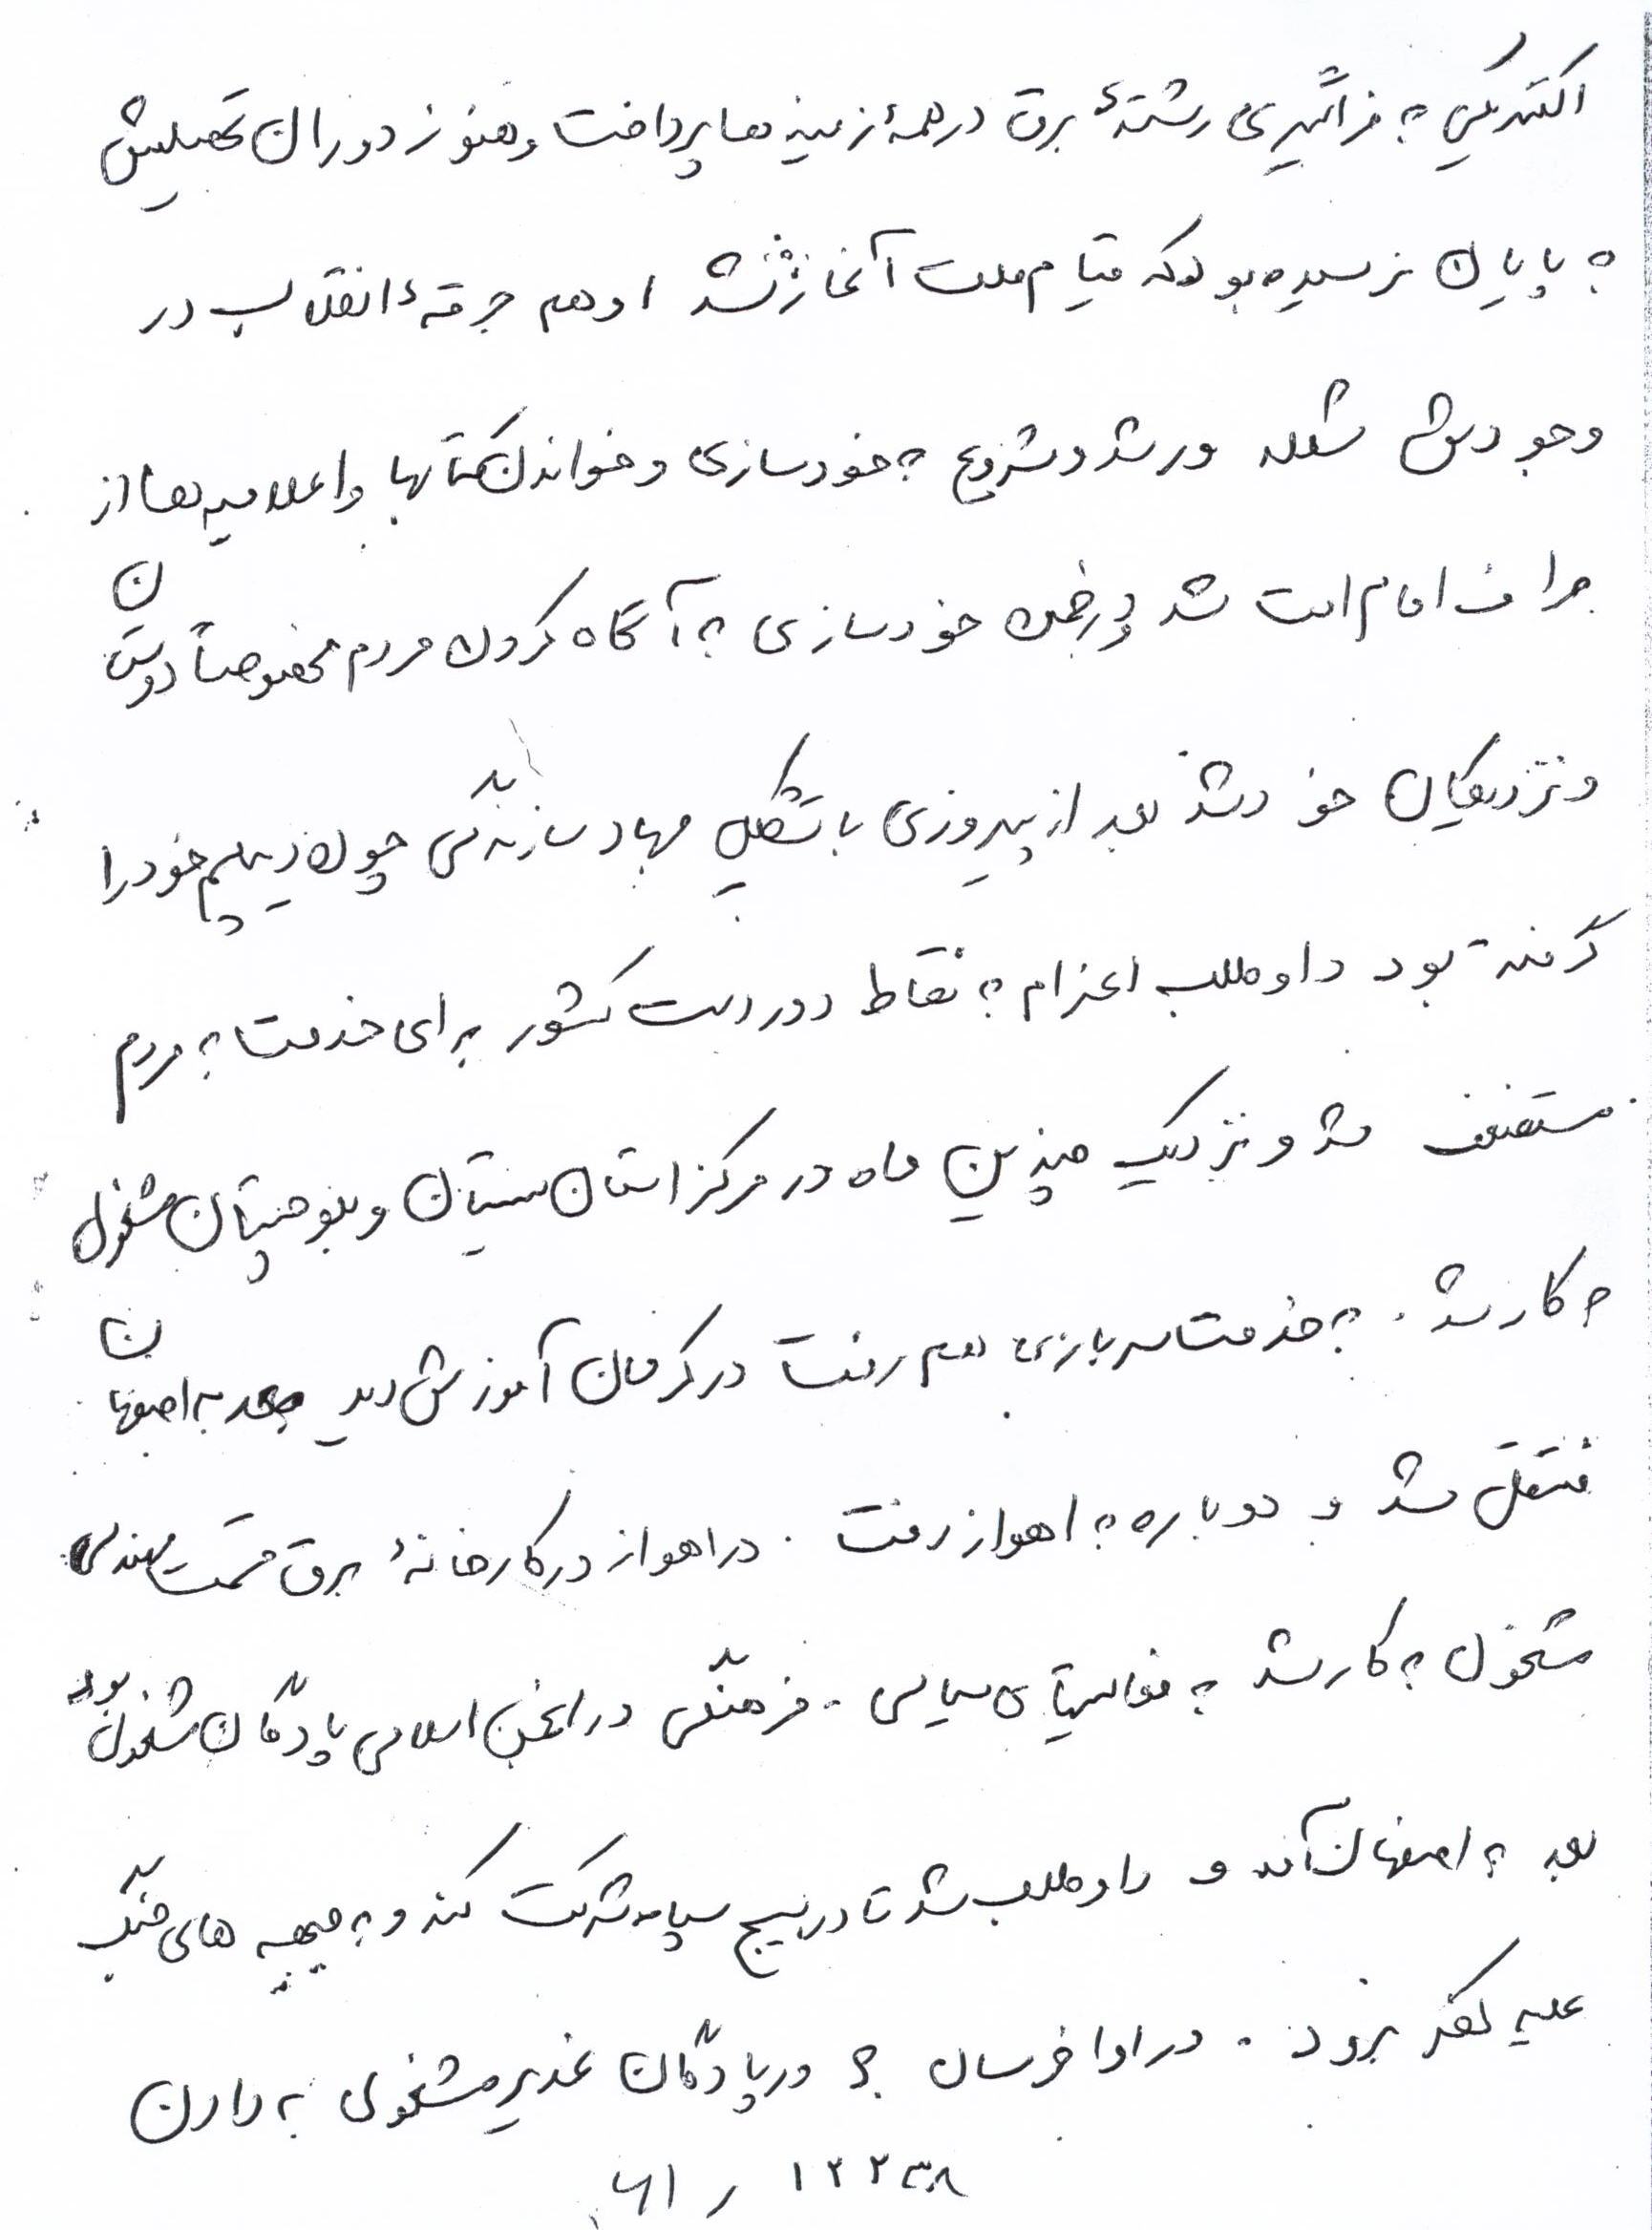 الکتریکی به فراگیری رشتهٔ برق در همهٔ زمینه ها پرداخت و هنوز دوران تحصیلیش
به پایان نرسیده بود که قیام ملت آغاز شد او هم جرقهٔ انقلاب در
وجودش شعله ور شد و شروع به خودسازی و خواندن کتابها و اعلامیه ها از
امام امت شد و در ضمن خودسازی به آگاه کردن مردم مخصوصاً دوستان
و نزدیکیان خود شد بعد از پیروزی با تشکیل جهاد سازندگی چون دیپلم خود را
گرفته بود داوطلب اعزام به نقاط دور دست کشور برای خدمت به مردم
مستضعف شد و نزدیک چندین ماه در مرکز استان سیستان و بلوچستان مشغول
به کار شد . به خدمت سربازی هم رفت در کرمان آموزش دید بعد به اصفهان
منتقل شد و دوباره به اهواز رفت . در اهواز در کارخانهٔ برق قسمت مهندسی
مشغول به کار شد به فعالیتهای سیاسی - فرهنگی در انجمن اسلامی پادگان مشغول بود
بعد به اصفهان آمد و داوطلب شد تا در بسیج سپاه شرکت کند و به جبهه های جنگ
علیه کفر برود . در اواخر سال در پادگان غدیر مشغول به دادن
۱۲۲۳۸ ر ۶۱